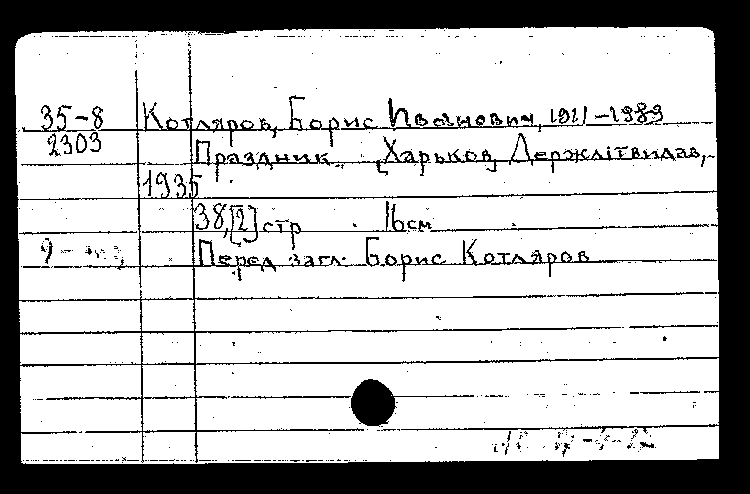 35-8
2303
Котляров, Борис Иванович, 1911-1989
Праздник. [Харьков] Держлiтвидав,
1935
38,[2] стр 16см
Перед загл: Борис Котляров